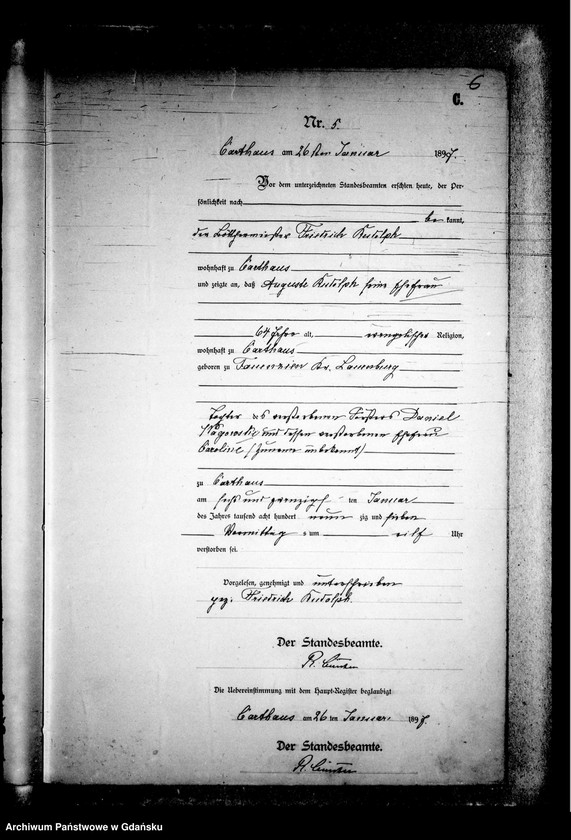 6
C.
Nr. 5.
Carthaus am 26ten Januar 1897.
Vor dem unterzeichneten Standesbeamten erschien heute, der Per-
sönlichkeit nach
be kannt,
der Böttchermeister Friedrich Rudolph
wohnhaft zu Carthaus
und zeigte an, daß Auguste Rudolph seine Ehefrau
64 Jahre alt, evangelischer Religion,
wohnhaft zu Carthaus
geboren zu Tauenzien Kr. Lauenburg
Tochter des verstorbenen Daniel
und dessen verstorbenen Ehefrau
Caroline (Zuname unbekannt)
zu Carthaus
am sechs und zwanzigsten Januar
des Jahres tausend acht hundert neun zig und sieben
Vormittags um elf Uhr
verstorben sei.
Vorgelesen, genehmigt und unterschrieben
gez. Friedrich Rudolph.
Der Standesbeamte.
Die Uebereinstimmung mit dem Haupt-Register beglaubigt
Carthaus am 26 ten Januar 1897.
Der Standesbeamte.
Archiwum Państwowe w Gdańsku